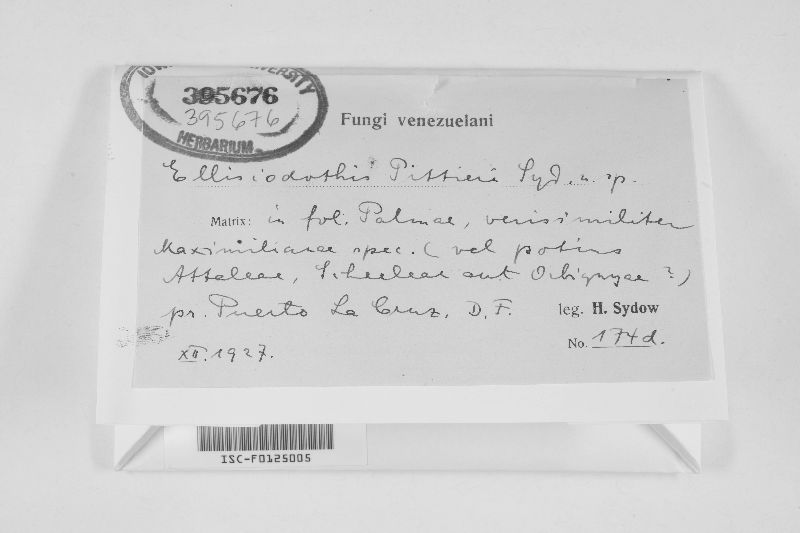 IOWA UNIVERSITY
395676
395676
HERBARIUM
Fungi venezuelani
Ellisiodothis Pittieri Syd. n. sp.
Matrix: in fol. Palmae, verisimiliter
Maximilianae spec. (vel potius
Attaleae, Scheeleae aut Orbignyae?)
pr. Puerto La Cruz, D. F. leg. H. Sydow
XII. 1927. No. 174d.
ISC-F0125005